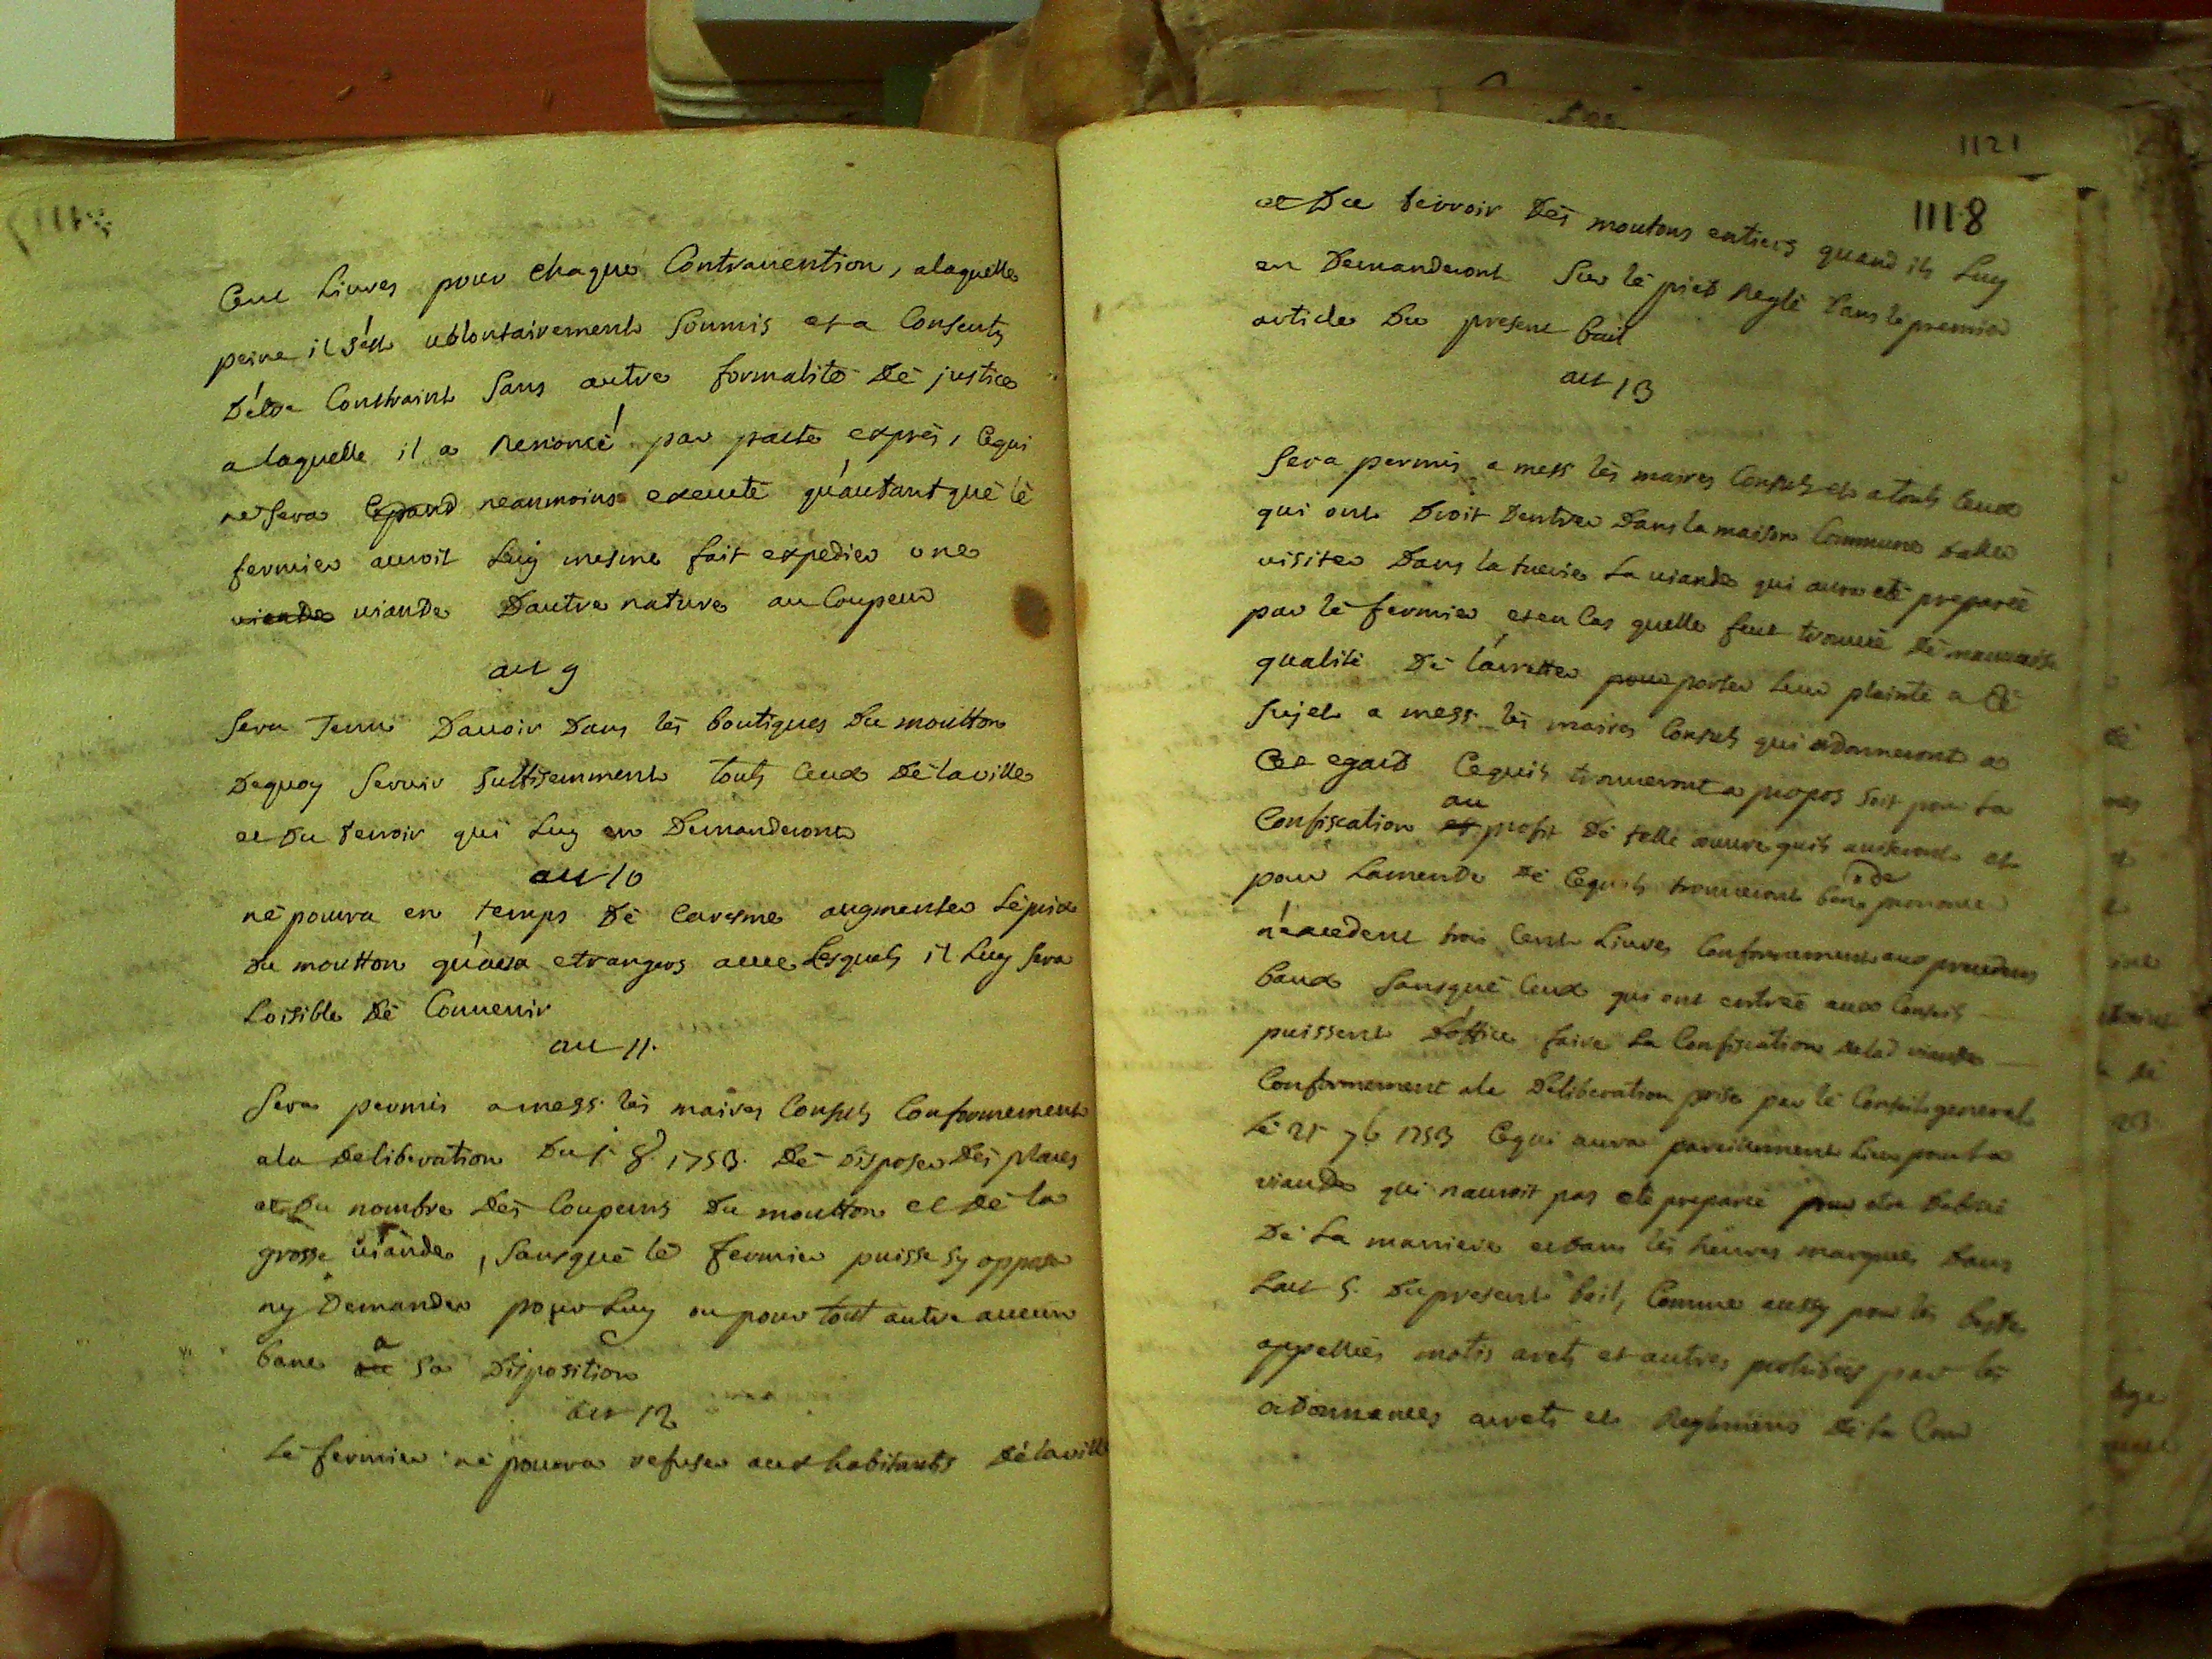 Cent Livres pour chaque Contravention, alaquelle
peine il s'est vollontairement soumis et a Consenty
D'etre Contraint sans autre formalité Dé justice
a laquelle il a Renoncé par pacte exprés, Cequi
ne sera neanmoins executé qu'autant qué lé
fermier auroit Luy mesme fait expedier une
viande viande D'autre nature au Coupeur
art 9
Sera Tenu Davoir Dans lés boutiques Du moutton
Dequoy servir suffisemment touts Ceux Dé la ville
et du terroir qui Luy en Demanderont
art 10
né pourra en temps Dé Caresme augmenter Lé prix
Du moutton qu'aux etrangers avec Lesquels il Luy sera
Loisible Dé Convenir
art 11.
Sera permis a mess. lés maires Consuls Conformement
ala Deliberation Du 1. 8. 1753. Dé Disposer Dés places
et Du nombre Dés Coupeurs Du moutton et Dé la
grosse viande, sansqué lé fermier puisse sy opposer
ny Demander pour Luy ou pour tout autre aucun
banc a sa Disposition
art 12
Lé fermier né pourra refuser aux habitants Dé la ville
1121
1118
et Du terroir Dés moutons entiers quand ils Luy
en Demanderont sur lé pied Reglé Dans le premier
article Du present bail
art 13
Sera permis a mess lés maires Consuls et a touts Ceux
qui ont Droit Dentrer Dans la maison Commune Daller
visiter Dans la tuerie La viande qui aura eté preparée
par lé fermier et en Cas quelle feut trouvée Dé mauvaise
qualité Dé L'arretter pour porter Leur plainte a Cé
sujet a mess. lés maires Consuls qui ordonneront a
Cet egard Cequils trouveront a propos soit pour La
Confiscation au profit Dé telle œuvre quils aviseront et
pour Lamende Dé Cequils trouveront bon de prononcer
n'excedent trois Cent Livres Conformement aux precedens
baux sansqué Ceux qui ont entrée aux Conseils
puissent D'office faire La Confiscation Delad viande
Conformement ala Deliberation prise par lé Conseil general
Lé 21 7b 1753 Cequi aura pareillement Lieu pour La
viande qui nauroit pas eté preparée pour etre Debitée
Dé La maniere et dans lés heures marquées Dans
Lart 5. Du present bail, Comme aussy pour lés bestes
appellées motis arets et autres prohibées par lés
ordonnances arrets et Reglemens Dé La Cour